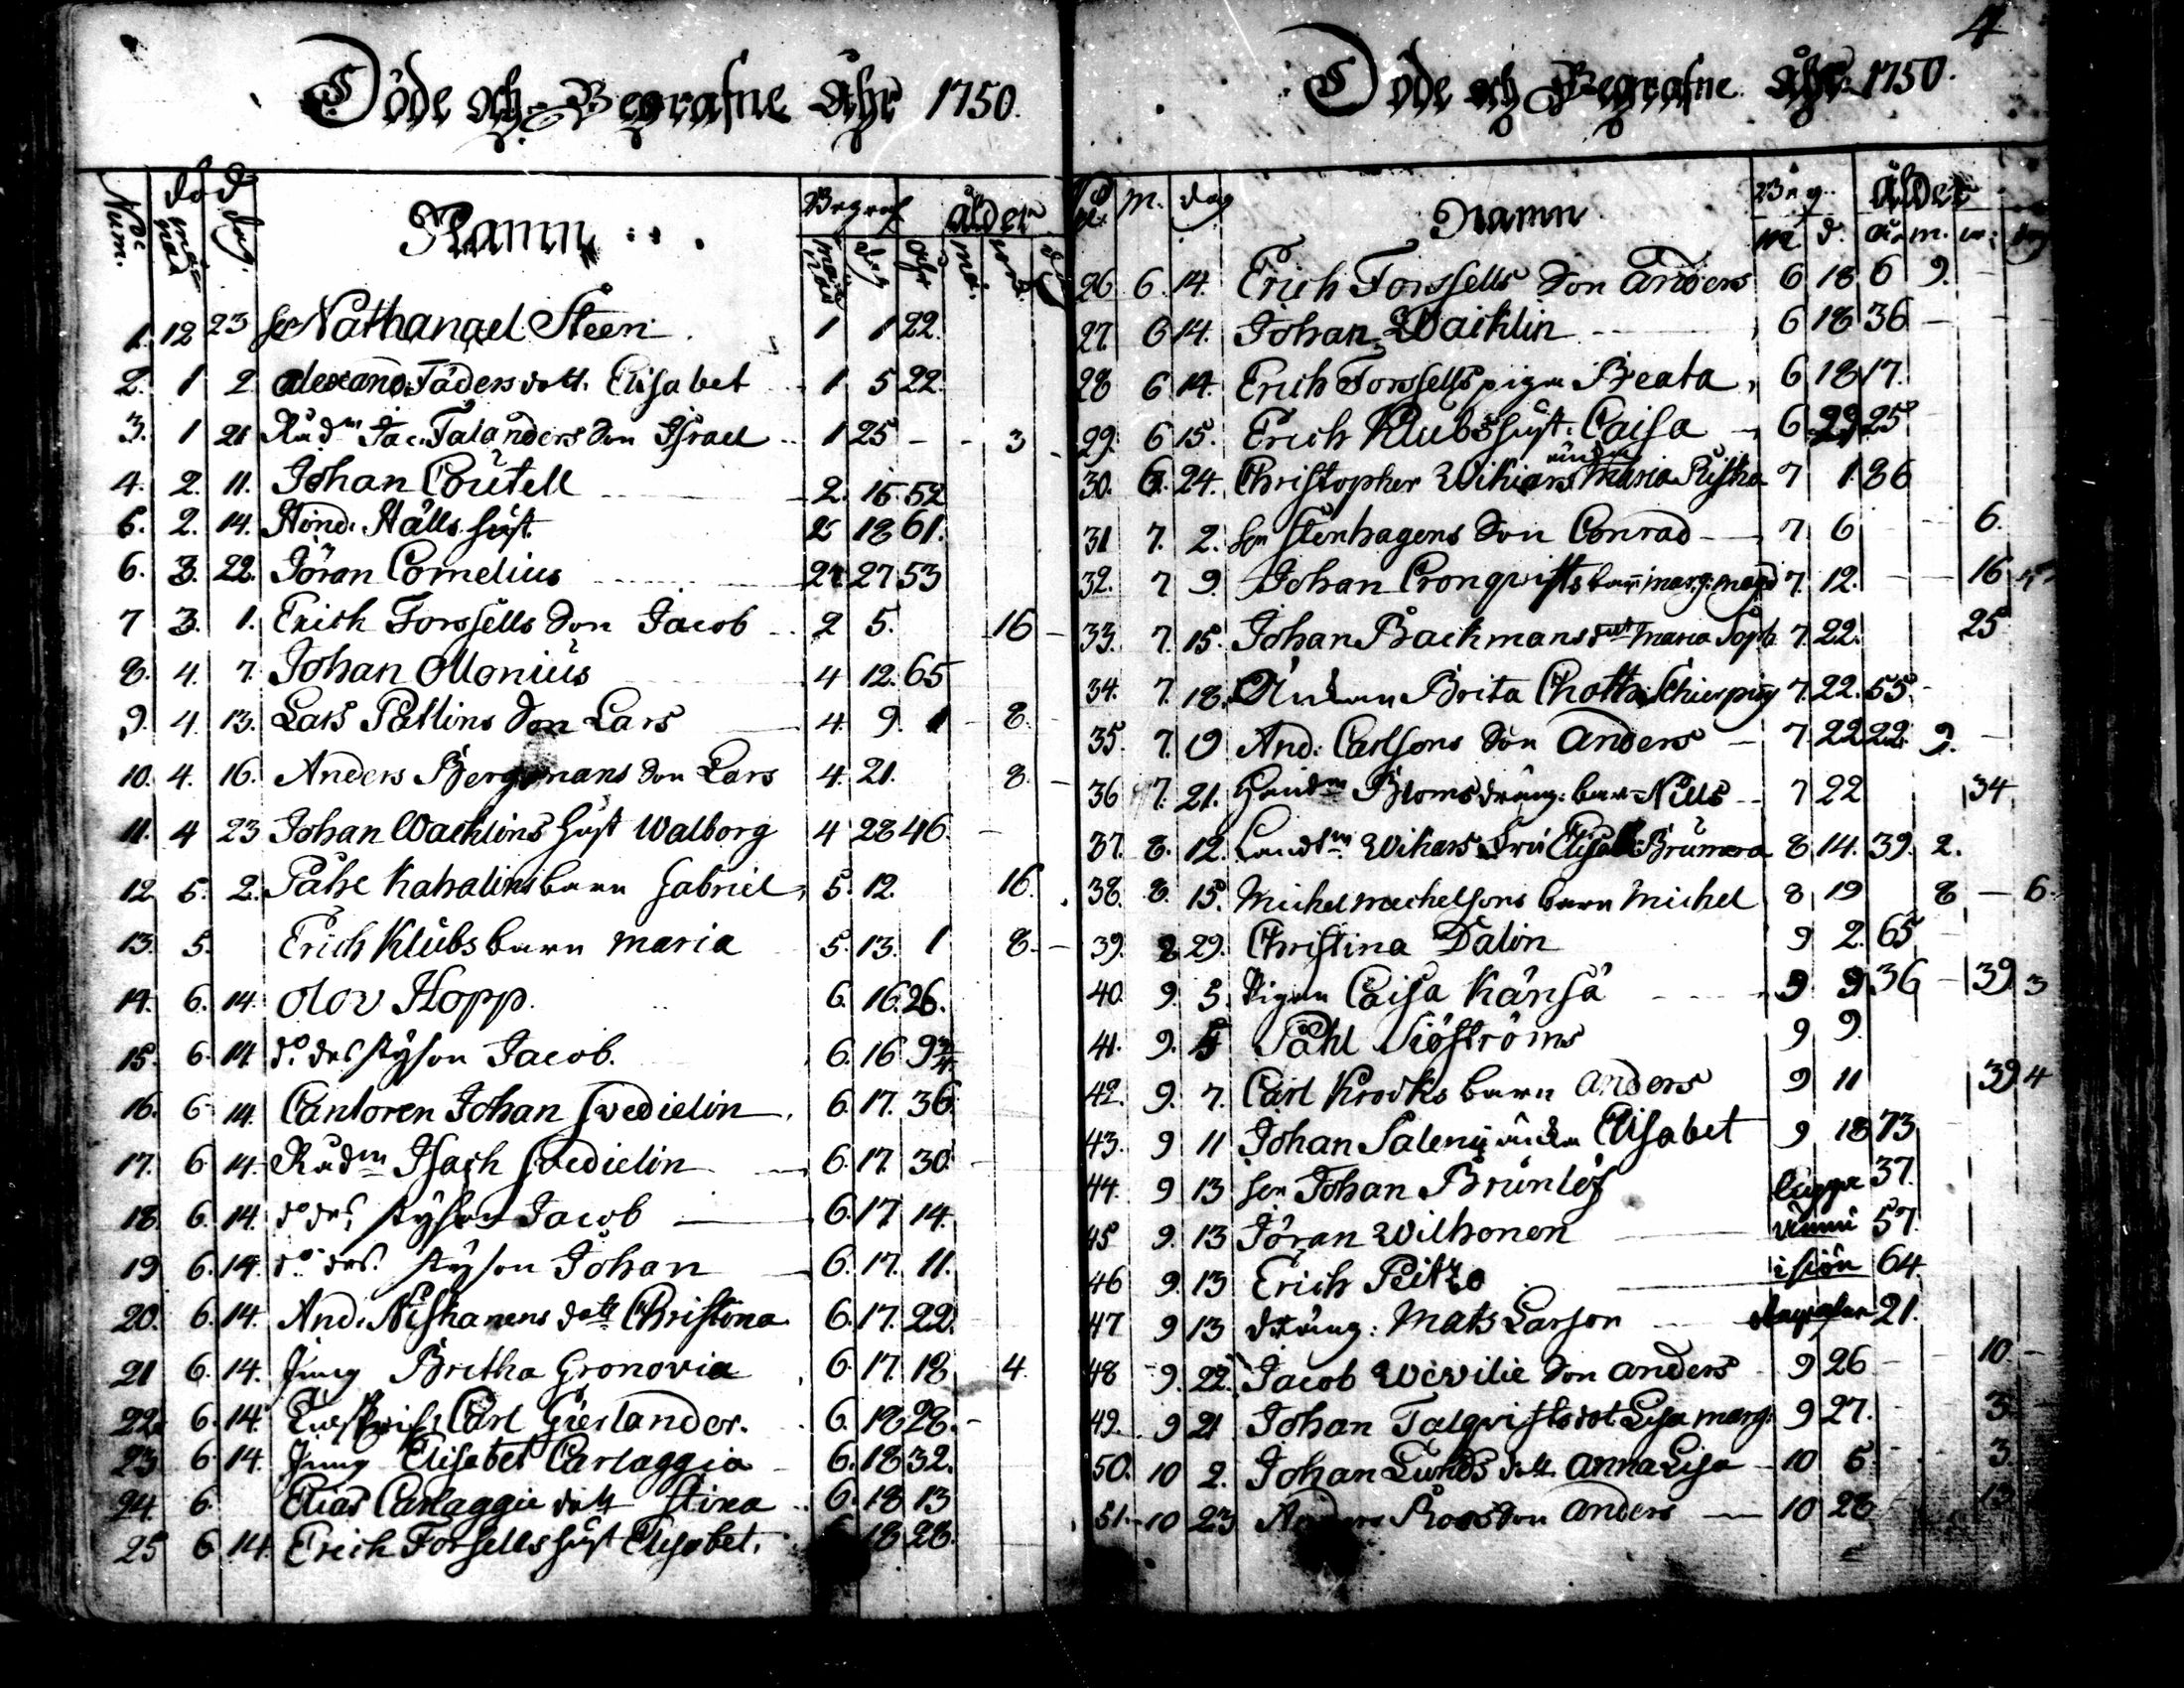 Döde och Begrafne åhr 1750.
Num. död månad dag. Namn Begraf. månad dag ålder åhr mån.
1. 12 23 Nathanael Steen 1 1 22.
2. 1 2 Alexand. Täders dott. Elisabet 1 5 22.
3. 1 21 Rådm Jac. Talanders Son Israel 1 25 - - 3
4. 2. 11. Johan Coutell 2. 15 52
5. 2. 14. Hind. Hålls hust. 2 18 61.
6. 3. 22. Jöran Cornelius 27 53
7 3. 1. Erich Forssells Son Jacob 2 5. 16
8. 4. 7. Johan Monius 4 12. 65
9. 4. 13. Lars Pallins Son Lars 4. 9. 1 - 8.
10. 4. 16. Anders Bergmans Son Lars 4. 21. 8.
11. 4 23 Johan Wachlins hust Walborg 4 28 46
12 5. 2. Påhl Kahalins barn Gabriel 5. 12. 16.
13. 5. Erich Klubs barn Maria 5. 13. 1 8.
14. 6. 14. Olov Hopp. 6. 16. 26.
15. 6. 14 do des styson Jacob. 6. 16 9 3/4
16. 6 14. Cantoren Johan Svedielin 6. 17. 36.
17. 6 14. Rådm Isach Svedielin 6. 17. 30.
18. 6. 14. do des styson Jacob 6. 17 14.
19 6. 14. do des styson Johan 6. 17. 11.
20. 6. 14. And. Niskanens dott Christina 6. 17. 22.
21 6. 14. Jung Britha Gronovia 6. 17. 18 4.
22. 6. 14. Carl Gierlander. 6. 18 28.
23 6 14. Jung Elisabet Carlaggia 6. 18 32.
24. 6. Elias Carlaggie dott Stina 6. 18 13
25 6 14. Erich Forssells hust Elisabet. 18 28.
4
Döde och Begrafne åhr 1750.
m. dag Namn Beg. m. d. ålder åhr m. w. dag
26 6. 14. Erich Forssells Son Anders 6 18 6 9.
27. 6 14. Johan Waihlin 6 18 36
28 6 14. Erich Forssells piga Beata 6 18 17.
29. 6 15. Erich Klubs hust. Caisa 6 29 25
30. 6. 24. Christopher Wikars änka Maria Riska 7 1. 86
31 7. 2. Stenhagens Son Conrad 7 6 6.
32. 7 9. Johan Cronqvists barn marg: magd 7. 12. 16
33. 7. 15. Johan Backmans dott Maria Soph. 7. 22. 25
34. 7. 18. Änkan Brita Chotta 7. 22. 55.
35. 7. 19 And: Carlsons Son Anders 7. 22 22. 9.
36 7. 21. Bloms dräng. barn Nills 7 22 34
37. 8. 12. Landtm Wikars Fru Elisab. Brumera 8 14. 39. 2.
38. 8. 15. Michel Michelsons barn Michel 8 19 8 - 6.
39. 8 29. Christina Dalin 9 2. 65
40. 9. 5. Pigan Caisa Känsä 9 9 36 - 39 3
41. 9. 5 Påhl Siöströms 9 9.
42. 9. 7. Carl Krooks barn Anders 9 11 39 4
43. 9 11 Johan Salenii änka Elisabet 9 18 73
44. 9 13 Johan Brunlöf ligga 37.
45 9. 13 Jöran Wilhonen ännu 57.
46 9. 13 Erich Peitzo i siön 64.
47 9 13 dräng: Mats Larson 21.
48 9. 22. Jacob Wiwilie Son Anders 9 26 10.
49. 9 21 Johan Talqvists dot Lisa marg: 9 27. 3
50. 10 2. Johan Lunds dott. Anna Lisa 10 6 3
51. 10 23 Anders Roos Son Anders 10 28 13